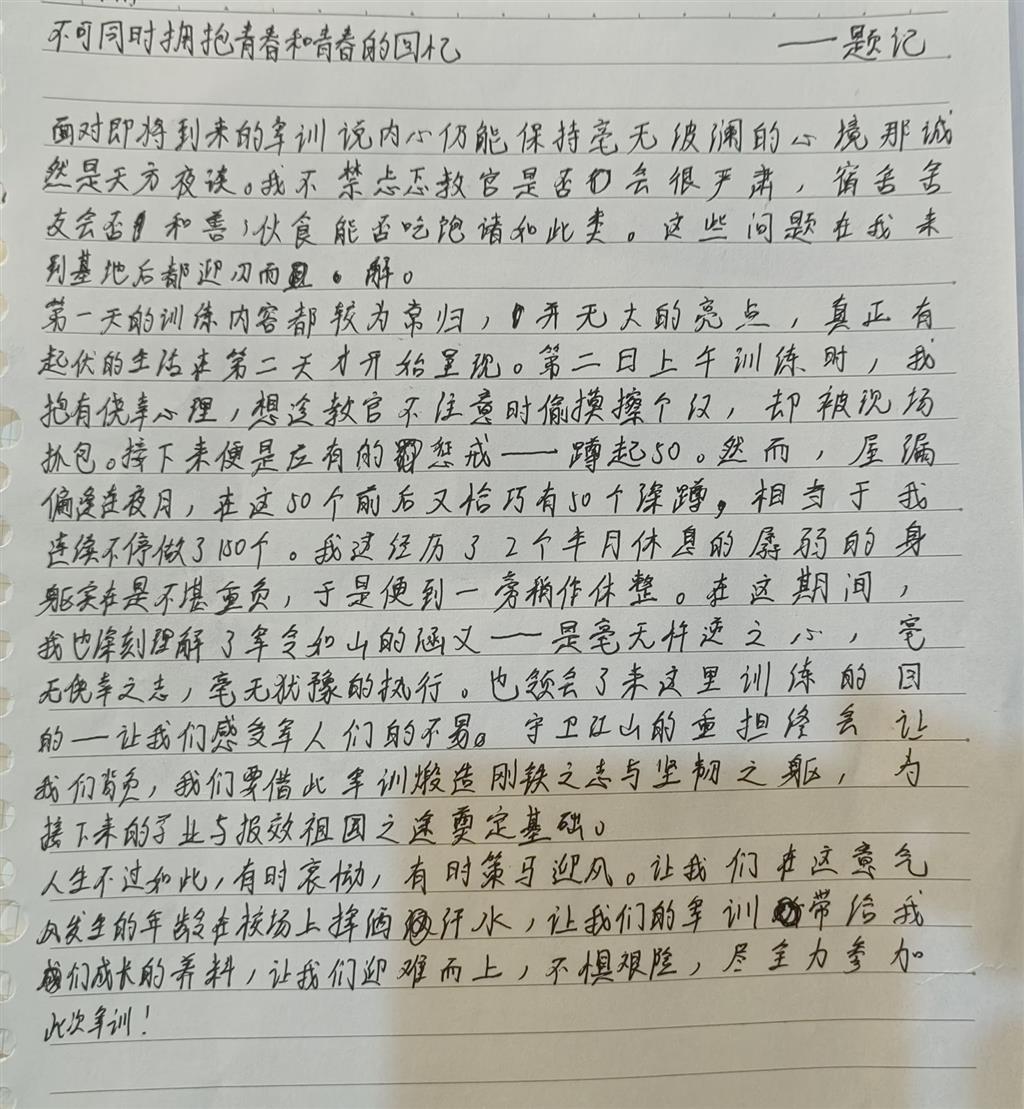 不可同时拥抱青春和青春的回忆 ——题记
面对即将到来的军训说内心仍能保持毫无波澜的心境那诚
然是天方夜谈。我不禁忐忑教官是否会很严肃，宿舍舍
友会否和善，伙食能否吃饱诸如此类。这些问题在我来
到基地后都迎刃而解。
第一天的训练内容都较为常归，并无大的亮点，真正有
起伏的生活在第二天才开始呈现。第二日上午训练时，我
抱有侥幸心理，想迨教官不注意时偷摸擦个汉，却被现场
抓包。接下来便是应有的惩戒——蹲起50。然而，屋漏
偏逢连夜月，在这50个前后又恰巧有50个深蹲，相当于我
连续不停做了150个。我这经历了2个半月休息的孱弱的身
躯实在是不堪重负，于是便到一旁稍作休整。在这期间，
我也深刻理解了军令如山的涵义——是毫无忤逆之心，毫
无侥幸之志，毫无犹豫的执行。也领会了来这里训练的目
的—让我们感受军人们的不易。守卫江山的重担终会让
我们背负，我们要借此军训煅造刚铁之志与坚韧之躯，为
接下来的学业与报效祖国之途奠定基础。
人生不过如此，有时哀恸，有时策马迎风。让我们在这意气
风发生的年龄在校场上挥洒汗水，让我们的军训带给我
们成长的养料，让我们迎难而上，不惧艰险，尽全力参加
此次军训！